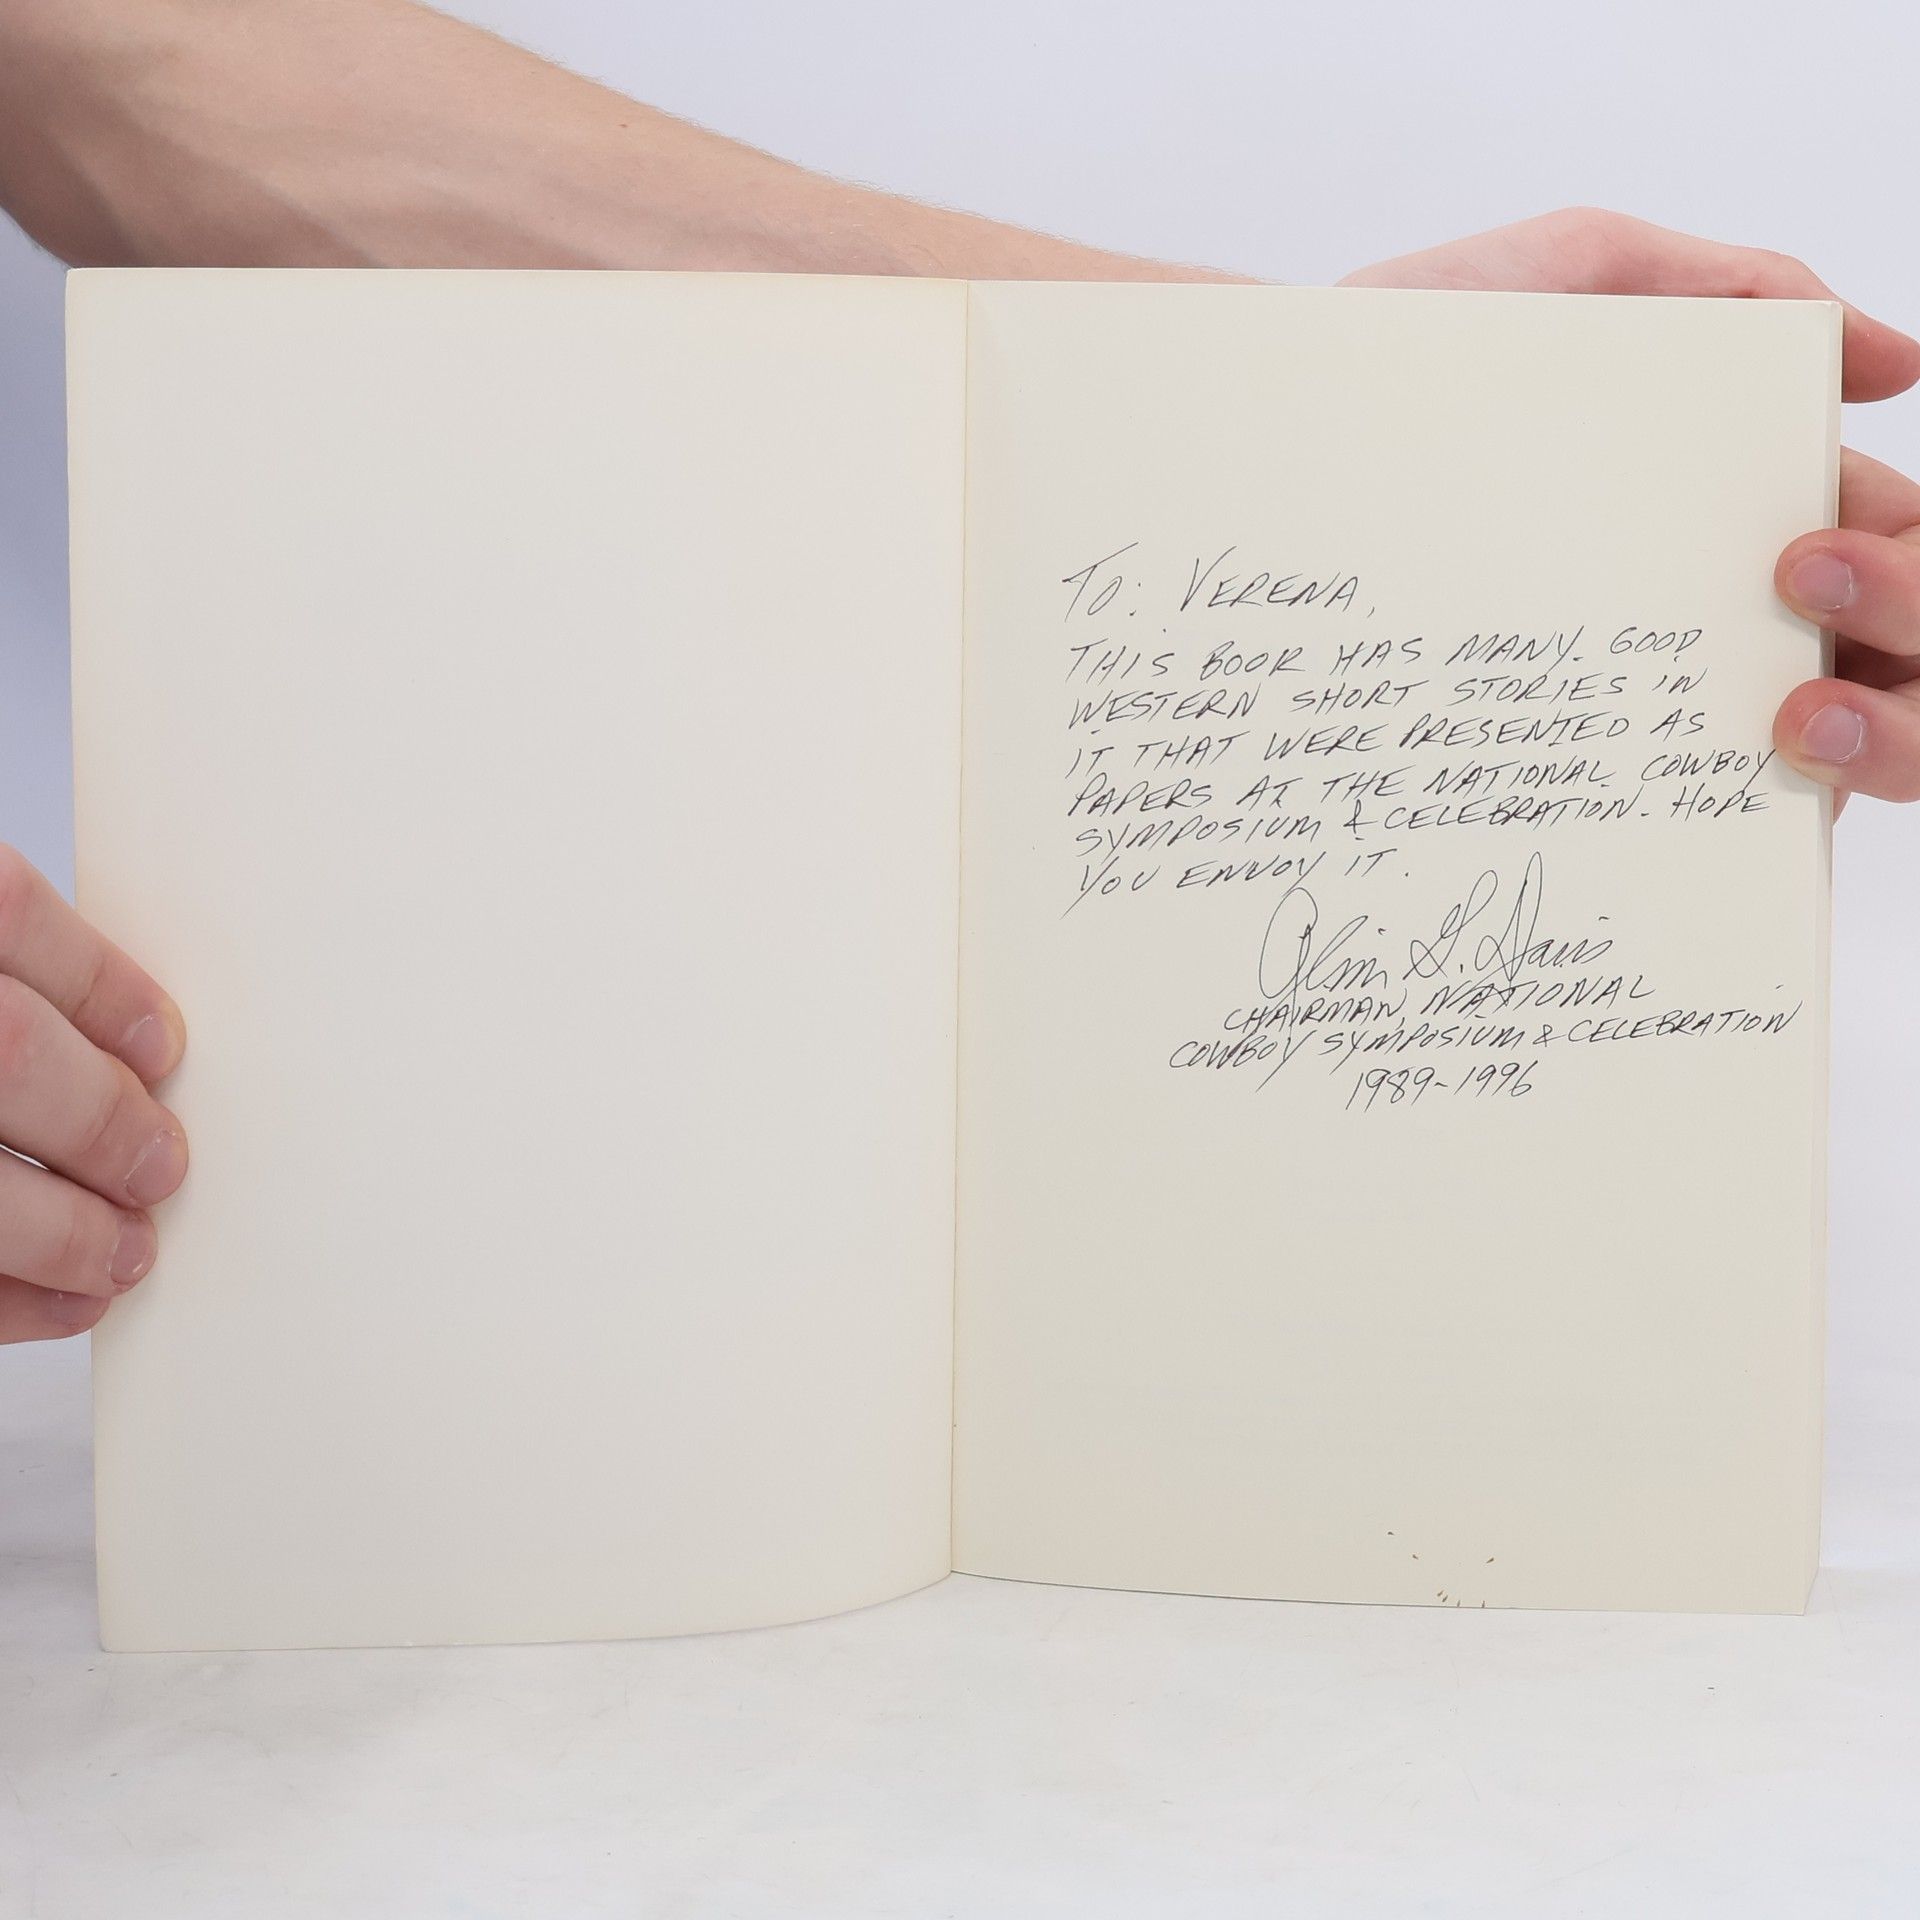 To: VERENA,
THIS BOOK HAS MANY GOOD
WESTERN SHORT STORIES IN
IT THAT WERE PRESENTED AS
PAPERS AT THE NATIONAL COWBOY
SYMPOSIUM & CELEBRATION. HOPE
YOU ENJOY IT.
Alvin G. Davis
CHAIRMAN, NATIONAL
COWBOY SYMPOSIUM & CELEBRATION
1989-1996